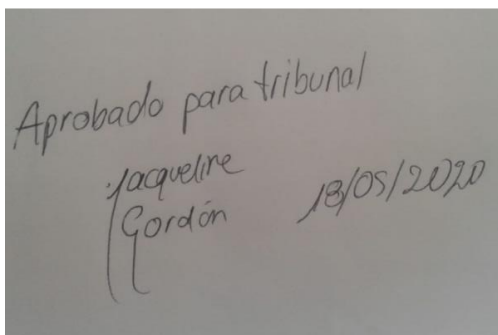 Aprobado para tribunal
Jacqueline
Gordón 18/05/2020